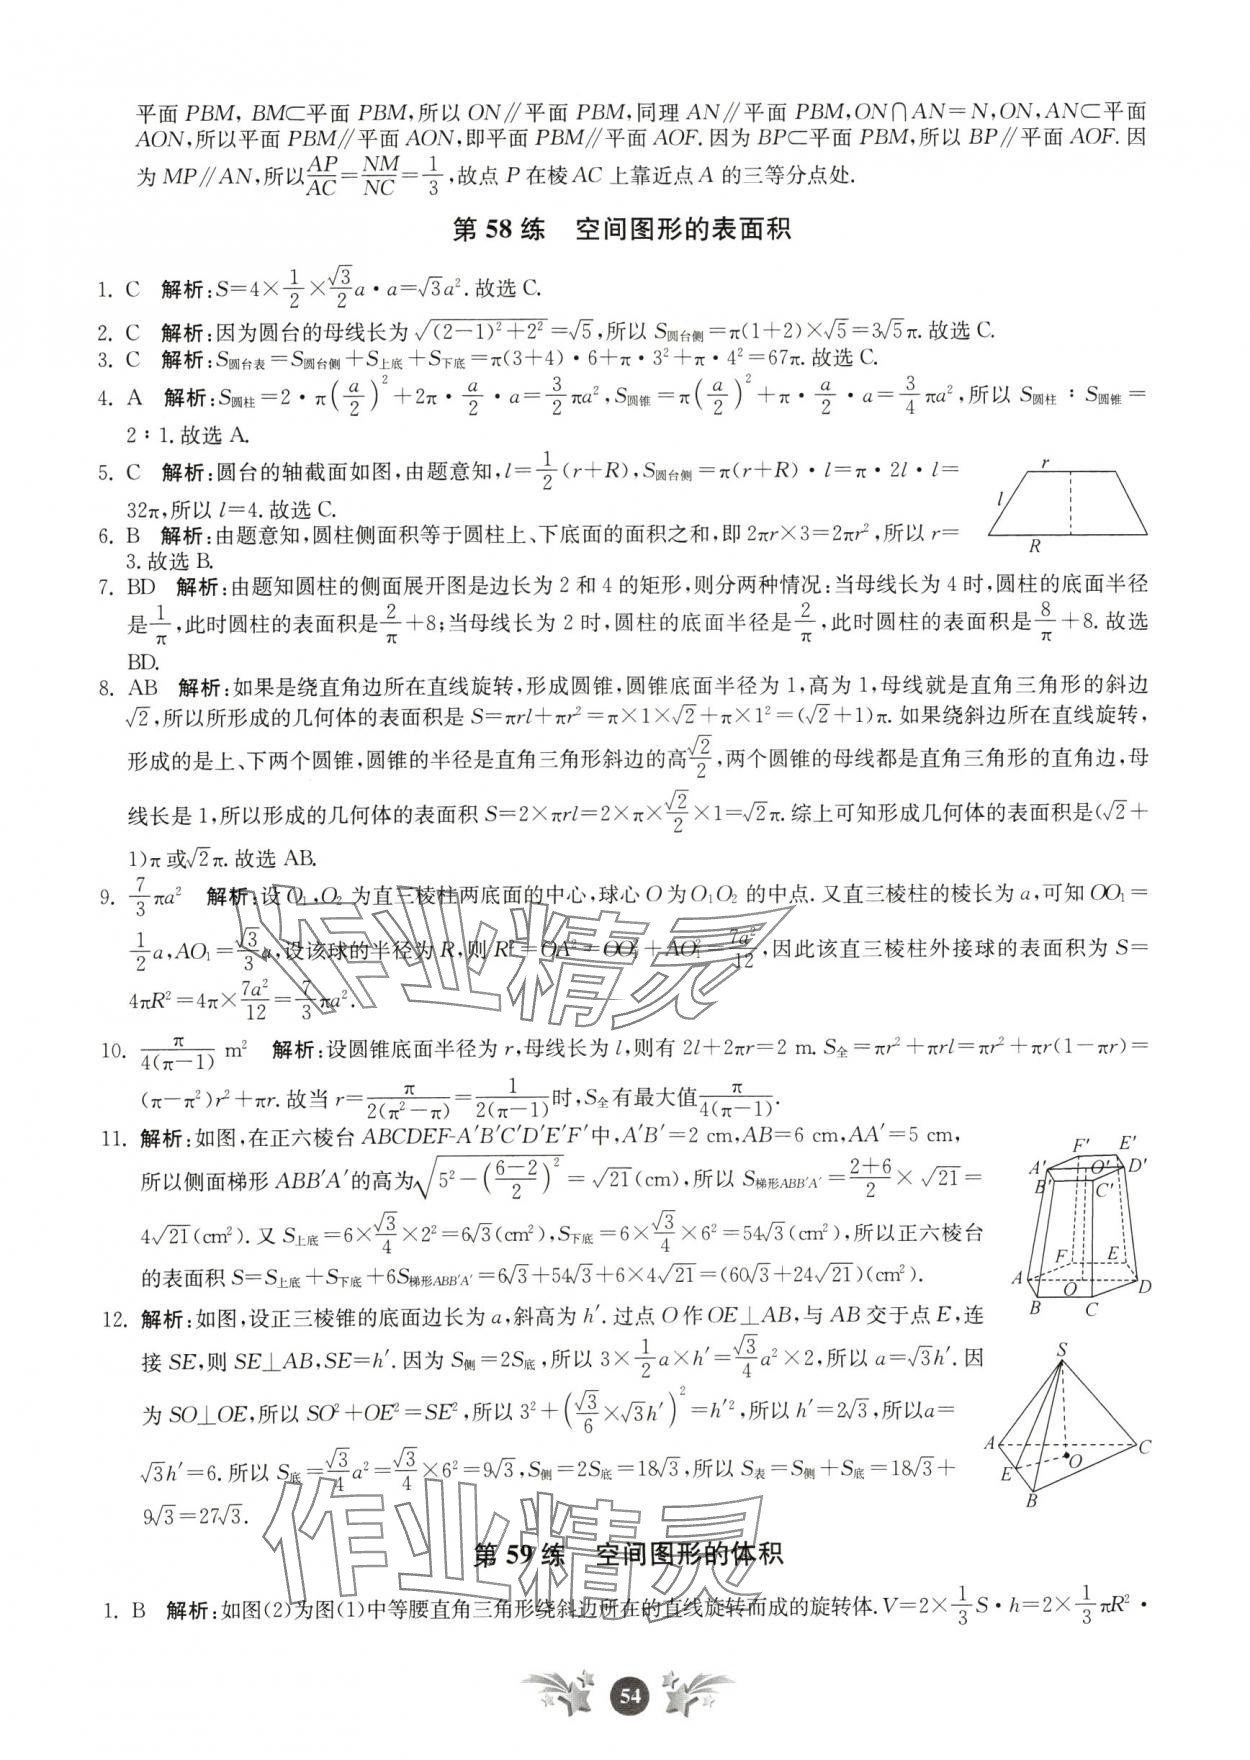 平面 PBM, BM⊂平面 PBM,所以 ON∥平面 PBM,同理 AN∥平面 PBM,ON∩AN=N,ON,AN⊂平面
AON,所以平面 PBM∥平面 AON,即平面 PBM∥平面 AOF.因为 BP⊂平面 PBM,所以 BP∥平面 AOF.因
为 MP∥AN,所以AP/AC=NM/NC=1/3,故点 P 在棱 AC 上靠近点 A 的三等分点处.
第 58 练　空间图形的表面积
1. C 解析:S=4×1/2×√3/2 a·a=√3a².故选 C.
2. C 解析:因为圆台的母线长为 √((2−1)²+2²)=√5,所以 S圆台侧=π(1+2)×√5=3√5π.故选 C.
3. C 解析:S圆台表=S圆台侧+S上底+S下底=π(3+4)·6+π·3²+π·4²=67π.故选 C.
4. A 解析:S圆柱=2·π(a/2)²+2π·a/2·a=3/2 πa²,S圆锥=π(a/2)²+π·a/2·a=3/4 πa²,所以 S圆柱∶S圆锥=
2∶1.故选 A.
5. C 解析:圆台的轴截面如图,由题意知,l=1/2(r+R),S圆台侧=π(r+R)·l=π·2l·l=
32π,所以 l=4.故选 C.
r
l
R
6. B 解析:由题意知,圆柱侧面积等于圆柱上、下底面的面积之和,即 2πr×3=2πr²,所以 r=
3.故选 B.
7. BD 解析:由题知圆柱的侧面展开图是边长为 2 和 4 的矩形,则分两种情况:当母线长为 4 时,圆柱的底面半径
是1/π,此时圆柱的表面积是2/π+8;当母线长为 2 时,圆柱的底面半径是2/π,此时圆柱的表面积是8/π+8.故选
BD.
8. AB 解析:如果是绕直角边所在直线旋转,形成圆锥,圆锥底面半径为 1,高为 1,母线就是直角三角形的斜边
√2,所以所形成的几何体的表面积是 S=πrl+πr²=π×1×√2+π×1²=(√2+1)π.如果绕斜边所在直线旋转,
形成的是上、下两个圆锥,圆锥的半径是直角三角形斜边的高√2/2,两个圆锥的母线都是直角三角形的直角边,母
线长是 1,所以形成的几何体的表面积 S=2×πrl=2×π×√2/2×1=√2π.综上可知形成几何体的表面积是(√2+
1)π 或√2π.故选 AB.
9. 7/3 πa² 解析:设 O₁,O₂ 为直三棱柱两底面的中心,球心 O 为 O₁O₂ 的中点.又直三棱柱的棱长为 a,可知 OO₁=
1/2 a,AO₁=√3/3 a,设该球的半径为 R,则 R²=OA²=OO₁²+AO₁²=7a²/12,因此该直三棱柱外接球的表面积为 S=
4πR²=4π×7a²/12=7/3 πa².
10. π/(4(π−1)) m² 解析:设圆锥底面半径为 r,母线长为 l,则有 2l+2πr=2 m.S全=πr²+πrl=πr²+πr(1−πr)=
(π−π²)r²+πr.故当 r=π/(2(π²−π))=1/(2(π−1))时,S全有最大值π/(4(π−1)).
11. 解析:如图,在正六棱台 ABCDEF-A′B′C′D′E′F′中,A′B′=2 cm,AB=6 cm,AA′=5 cm,
所以侧面梯形 ABB′A′的高为√(5²−((6−2)/2)²)=√21(cm),所以 S梯形ABB′A′=(2+6)/2×√21=
4√21(cm²).又 S上底=6×√3/4×2²=6√3(cm²),S下底=6×√3/4×6²=54√3(cm²),所以正六棱台
的表面积 S=S上底+S下底+6S梯形ABB′A′=6√3+54√3+6×4√21=(60√3+24√21)(cm²).
F′ E′
A′ O′ D′
B′ C′
F E
A O D
B C
12. 解析:如图,设正三棱锥的底面边长为 a,斜高为 h′.过点 O 作 OE⊥AB,与 AB 交于点 E,连
接 SE,则 SE⊥AB,SE=h′.因为 S侧=2S底,所以 3×1/2 a×h′=√3/4 a²×2,所以 a=√3h′.因
为 SO⊥OE,所以 SO²+OE²=SE²,所以 3²+(√3/6×√3h′)²=h′²,所以 h′=2√3,所以a=
√3h′=6.所以 S底=√3/4 a²=√3/4×6²=9√3,S侧=2S底=18√3,所以 S表=S侧+S底=18√3+
9√3=27√3.
S
A C
E O
B
第 59 练　空间图形的体积
1. B 解析:如图(2)为图(1)中等腰直角三角形绕斜边所在的直线旋转而成的旋转体.V=2×1/3 S·h=2×1/3 πR²·
54
作业精灵
作业精灵